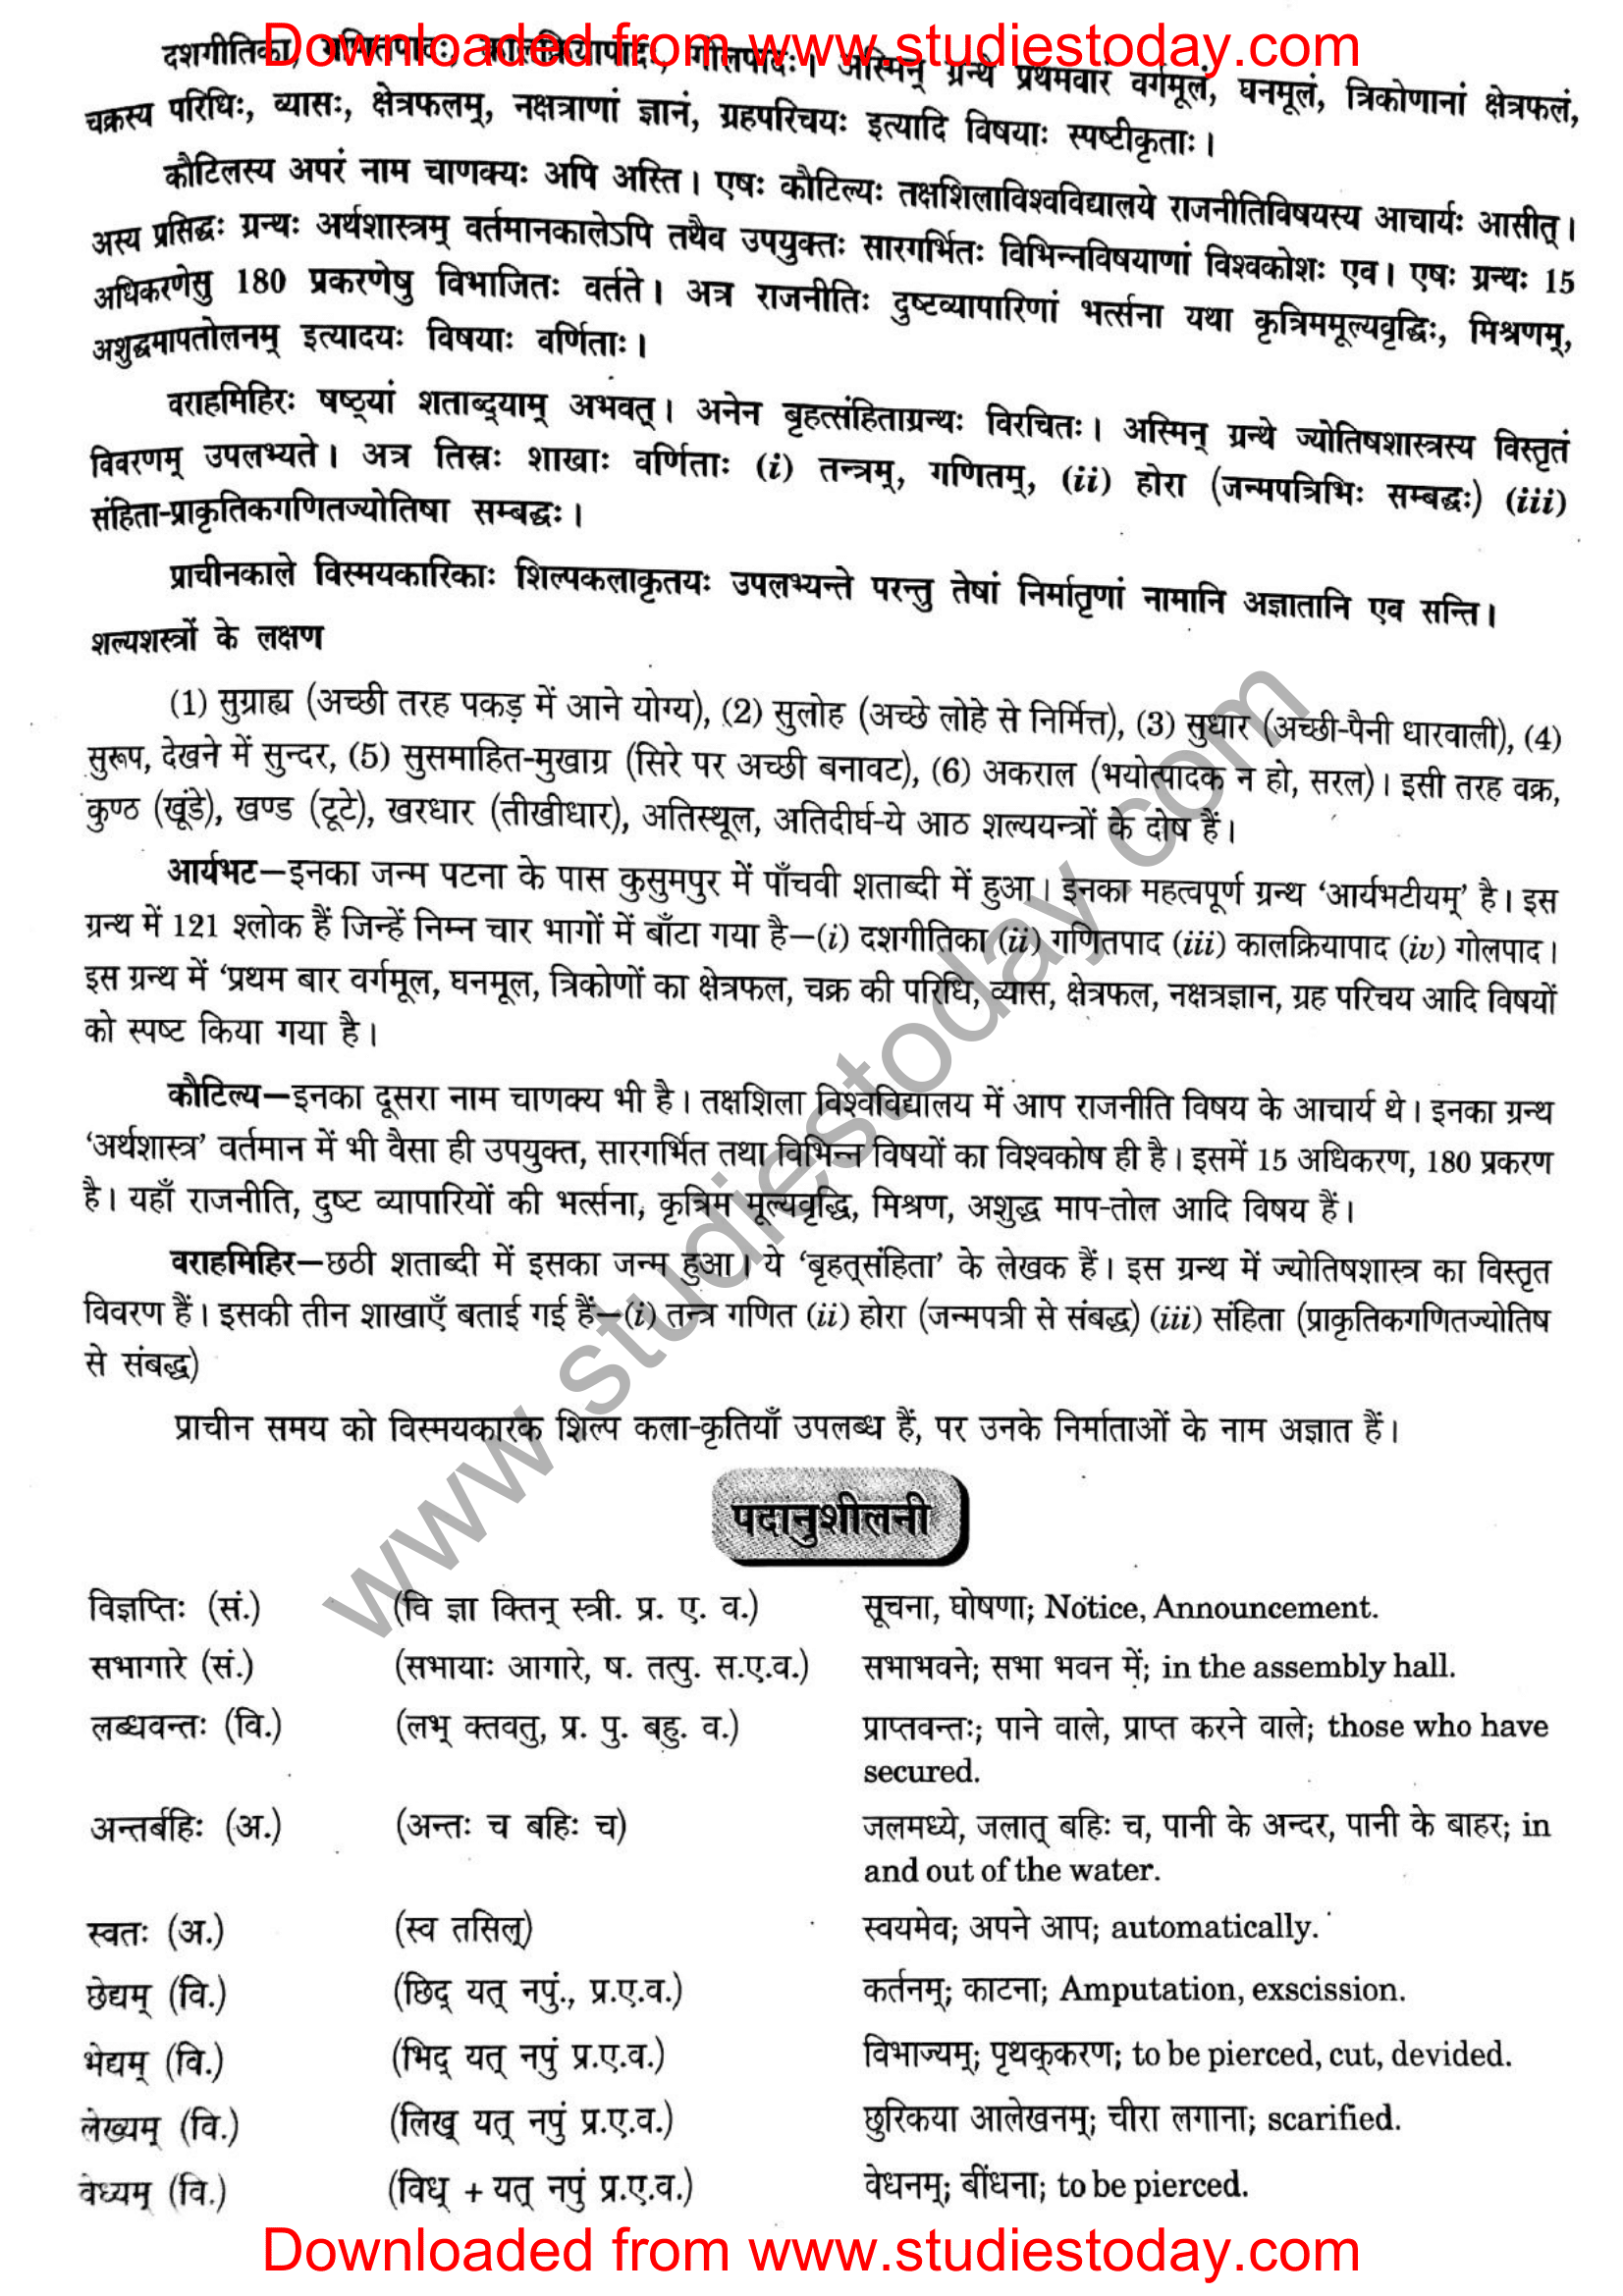 Downloaded from www.studiestoday.com
दशगीतिका, गणितपादः, कालक्रियापादः, गोलपादः। अस्मिन् ग्रन्थे प्रथमवारं वर्गमूलं, घनमूलं, त्रिकोणानां क्षेत्रफलं,
चक्रस्य परिधिः, व्यासः, क्षेत्रफलम्, नक्षत्राणां ज्ञानं, ग्रहपरिचयः इत्यादि विषयाः स्पष्टीकृताः।
कौटिलस्य अपरं नाम चाणक्यः अपि अस्ति। एषः कौटिल्यः तक्षशिलाविश्वविद्यालये राजनीतिविषयस्य आचार्यः आसीत्।
अस्य प्रसिद्धः ग्रन्थः अर्थशास्त्रम् वर्तमानकालेऽपि तथैव उपयुक्तः सारगर्भितः विभिन्नविषयाणां विश्वकोशः एव। एषः ग्रन्थः 15
अधिकरणेसु 180 प्रकरणेषु विभाजितः वर्तते। अत्र राजनीतिः दुष्टव्यापारिणां भर्त्सना यथा कृत्रिममूल्यवृद्धिः, मिश्रणम्,
अशुद्धमापतोलनम् इत्यादयः विषयाः वर्णिताः।
वराहमिहिरः षष्ठ्यां शताब्द्याम् अभवत्। अनेन बृहत्संहिताग्रन्थः विरचितः। अस्मिन् ग्रन्थे ज्योतिषशास्त्रस्य विस्तृतं
विवरणम् उपलभ्यते। अत्र तिस्रः शाखाः वर्णिताः (i) तन्त्रम्, गणितम्, (ii) होरा (जन्मपत्रिभिः सम्बद्धः) (iii)
संहिता-प्राकृतिकगणितज्योतिषा सम्बद्धः।
प्राचीनकाले विस्मयकारिकाः शिल्पकलाकृतयः उपलभ्यन्ते परन्तु तेषां निर्मातृणां नामानि अज्ञातानि एव सन्ति।
शल्यशस्त्रों के लक्षण
(1) सुग्राह्य (अच्छी तरह पकड़ में आने योग्य), (2) सुलोह (अच्छे लोहे से निर्मित्त), (3) सुधार (अच्छी-पैनी धारवाली), (4)
सुरूप, देखने में सुन्दर, (5) सुसमाहित-मुखाग्र (सिरे पर अच्छी बनावट), (6) अकराल (भयोत्पादक न हो, सरल)। इसी तरह वक्र,
कुण्ठ (खूंडे), खण्ड (टूटे), खरधार (तीखीधार), अतिस्थूल, अतिदीर्घ-ये आठ शल्ययन्त्रों के दोष हैं।
आर्यभट—इनका जन्म पटना के पास कुसुमपुर में पाँचवी शताब्दी में हुआ। इनका महत्वपूर्ण ग्रन्थ ‘आर्यभटीयम्’ है। इस
ग्रन्थ में 121 श्लोक हैं जिन्हें निम्न चार भागों में बाँटा गया है—(i) दशगीतिका (ii) गणितपाद (iii) कालक्रियापाद (iv) गोलपाद।
इस ग्रन्थ में ‘प्रथम बार वर्गमूल, घनमूल, त्रिकोणों का क्षेत्रफल, चक्र की परिधि, व्यास, क्षेत्रफल, नक्षत्रज्ञान, ग्रह परिचय आदि विषयों
को स्पष्ट किया गया है।
कौटिल्य—इनका दूसरा नाम चाणक्य भी है। तक्षशिला विश्वविद्यालय में आप राजनीति विषय के आचार्य थे। इनका ग्रन्थ
‘अर्थशास्त्र’ वर्तमान में भी वैसा ही उपयुक्त, सारगर्भित तथा विभिन्न विषयों का विश्वकोष ही है। इसमें 15 अधिकरण, 180 प्रकरण
है। यहाँ राजनीति, दुष्ट व्यापारियों की भर्त्सना, कृत्रिम मूल्यवृद्धि, मिश्रण, अशुद्ध माप-तोल आदि विषय हैं।
वराहमिहिर—छठी शताब्दी में इसका जन्म हुआ। ये ‘बृहत्संहिता’ के लेखक हैं। इस ग्रन्थ में ज्योतिषशास्त्र का विस्तृत
विवरण हैं। इसकी तीन शाखाएँ बताई गई हैं—(i) तन्त्र गणित (ii) होरा (जन्मपत्री से संबद्ध) (iii) संहिता (प्राकृतिकगणितज्योतिष
से संबद्ध)
प्राचीन समय को विस्मयकारक शिल्प कला-कृतियाँ उपलब्ध हैं, पर उनके निर्माताओं के नाम अज्ञात हैं।
पदानुशीलनी
विज्ञप्तिः (सं.) (वि ज्ञा क्तिन् स्त्री. प्र. ए. व.) सूचना, घोषणा; Notice, Announcement.
सभागारे (सं.) (सभायाः आगारे, ष. तत्पु. स.ए.व.) सभाभवने; सभा भवन में; in the assembly hall.
लब्धवन्तः (वि.) (लभ् क्तवतु, प्र. पु. बहु. व.) प्राप्तवन्तः; पाने वाले, प्राप्त करने वाले; those who have
secured.
अन्तर्बहिः (अ.) (अन्तः च बहिः च) जलमध्ये, जलात् बहिः च, पानी के अन्दर, पानी के बाहर; in
and out of the water.
स्वतः (अ.) (स्व तसिल्) स्वयमेव; अपने आप; automatically.
छेद्यम् (वि.) (छिद् यत् नपुं., प्र.ए.व.) कर्तनम्; काटना; Amputation, exscission.
भेद्यम् (वि.) (भिद् यत् नपुं प्र.ए.व.) विभाज्यम्; पृथक्करण; to be pierced, cut, devided.
लेख्यम् (वि.) (लिख् यत् नपुं प्र.ए.व.) छुरिकया आलेखनम्; चीरा लगाना; scarified.
वेध्यम् (वि.) (विध् + यत् नपुं प्र.ए.व.) वेधनम्; बींधना; to be pierced.
www.studiestoday.com
Downloaded from www.studiestoday.com